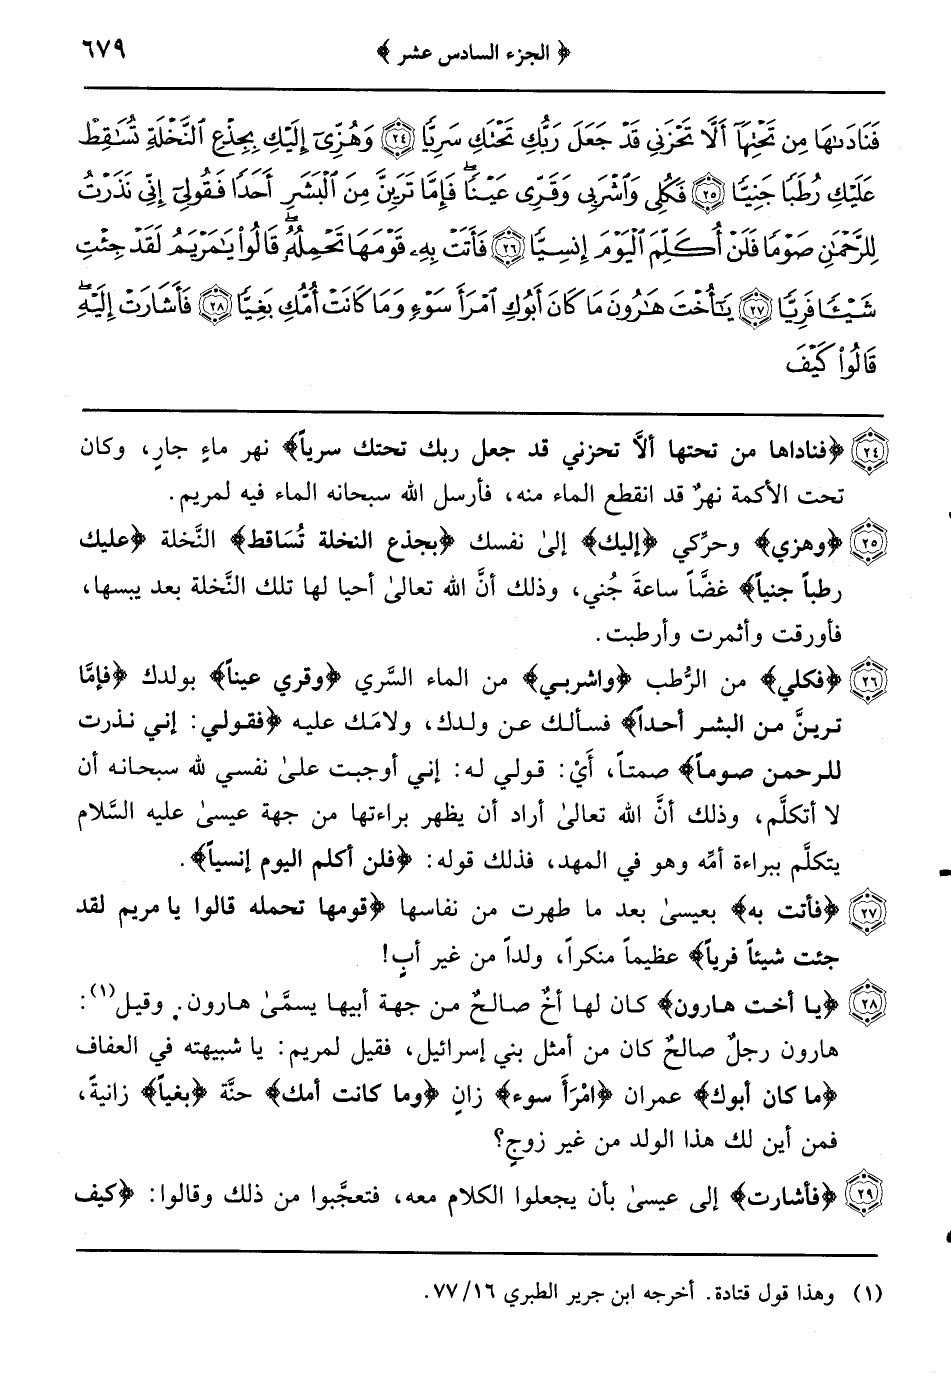 ﴿ الجزء السادس عشر ﴾ ٦٧٩
فَنَادَىٰهَا مِن تَحْتِهَآ أَلَّا تَحْزَنِى قَدْ جَعَلَ رَبُّكِ تَحْتَكِ سَرِيًّا ٢٤ وَهُزِّىٓ إِلَيْكِ بِجِذْعِ ٱلنَّخْلَةِ تُسَٰقِطْ
عَلَيْكِ رُطَبًا جَنِيًّا ٢٥ فَكُلِى وَٱشْرَبِى وَقَرِّى عَيْنًاۖ فَإِمَّا تَرَيِنَّ مِنَ ٱلْبَشَرِ أَحَدًا فَقُولِىٓ إِنِّى نَذَرْتُ
لِلرَّحْمَٰنِ صَوْمًا فَلَنْ أُكَلِّمَ ٱلْيَوْمَ إِنسِيًّا ٢٦ فَأَتَتْ بِهِۦ قَوْمَهَا تَحْمِلُهُۥۖ قَالُوا۟ يَٰمَرْيَمُ لَقَدْ جِئْتِ
شَيْـًٔا فَرِيًّا ٢٧ يَٰٓأُخْتَ هَٰرُونَ مَا كَانَ أَبُوكِ ٱمْرَأَ سَوْءٍ وَمَا كَانَتْ أُمُّكِ بَغِيًّا ٢٨ فَأَشَارَتْ إِلَيْهِۖ
قَالُوا۟ كَيْفَ
٢٤ ﴿فناداها من تحتها ألاَّ تحزني قد جعل ربك تحتك سرياً﴾ نهر ماءٍ جارٍ، وكان
تحت الأكمة نهرٌ قد انقطع الماء منه، فأرسل الله سبحانه الماء فيه لمريم.
٢٥ ﴿وهزي﴾ وحرِّكي ﴿إليك﴾ إلىٰ نفسك ﴿بجذع النخلة تُسَاقط﴾ النَّخلة ﴿عليك
رطباً جنياً﴾ غضَّاً ساعةَ جُني، وذلك أنَّ الله تعالىٰ أحيا لها تلك النَّخلة بعد يبسها،
فأورقت وأثمرت وأرطبت.
٢٦ ﴿فكلي﴾ من الرُّطب ﴿واشربي﴾ من الماء السَّري ﴿وقري عيناً﴾ بولدك ﴿فإمَّا
ترينَّ من البشر أحداً﴾ فسألك عن ولدك، ولامَك عليه ﴿فقولي: إني نذرت
للرحمن صوماً﴾ صمتاً، أَيْ: قولي له: إني أوجبت علىٰ نفسي لله سبحانه أن
لا أتكلَّم، وذلك أنَّ الله تعالىٰ أراد أن يظهر براءتها من جهة عيسىٰ عليه السَّلام
يتكلَّم ببراءة أمِّه وهو في المهد، فذلك قوله: ﴿فلن أكلم اليوم إنسياً﴾.
٢٧ ﴿فأتت به﴾ بعيسىٰ بعد ما طهرت من نفاسها ﴿قومها تحمله قالوا يا مريم لقد
جئت شيئاً فرياً﴾ عظيماً منكراً، ولداً من غير أبٍ!
٢٨ ﴿يا أخت هارون﴾ كان لها أخٌ صالحٌ من جهة أبيها يسمَّىٰ هارون. وقيل(١):
هارون رجلٌ صالحٌ كان من أمثل بني إسرائيل، فقيل لمريم: يا شبيهته في العفاف
﴿ما كان أبوك﴾ عمران ﴿امْرَأَ سوء﴾ زانٍ ﴿وما كانت أمك﴾ حنَّة ﴿بغياً﴾ زانيةً،
فمن أين لك هذا الولد من غير زوجٍ؟
٢٩ ﴿فأشارت﴾ إلى عيسىٰ بأن يجعلوا الكلام معه، فتعجَّبوا من ذلك وقالوا: ﴿كيف
(١) وهذا قول قتادة. أخرجه ابن جرير الطبري ٧٧/١٦.